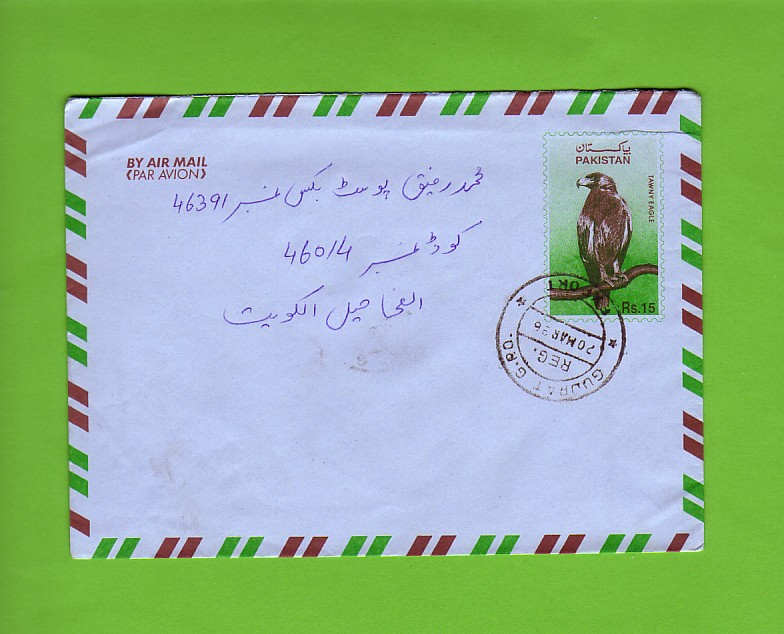 BY AIR MAIL
(PAR AVION)
پاکستان
PAKISTAN
TAWNY EAGLE
Rs.15
محمد رفیق پوسٹ بکس نمبر 46391
کوڈ نمبر 46014
الفحاحیل الکویت
GUJRAT G.P.O.
REG.
20 MAR 96